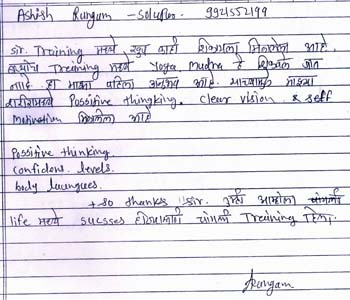 Ashish Rungam - Solapur. 9921552199
sir. Training मध्ये खुप काही शिकायला मिळालेल आहे.
Training मध्ये Yoga Mudra हे शिकवले जात
नाही. हा माझा पहिला अनुभव आहे. माझ्या
Possitive thingking, clear vision & self
Motivation मिळाले आहे
Possitive thinking.
confident levels.
body launguces.
+ so thanks sir. आम्हाला चांगली
life मध्ये sucsses होण्यासाठी चांगली Training दिली.
ARungam